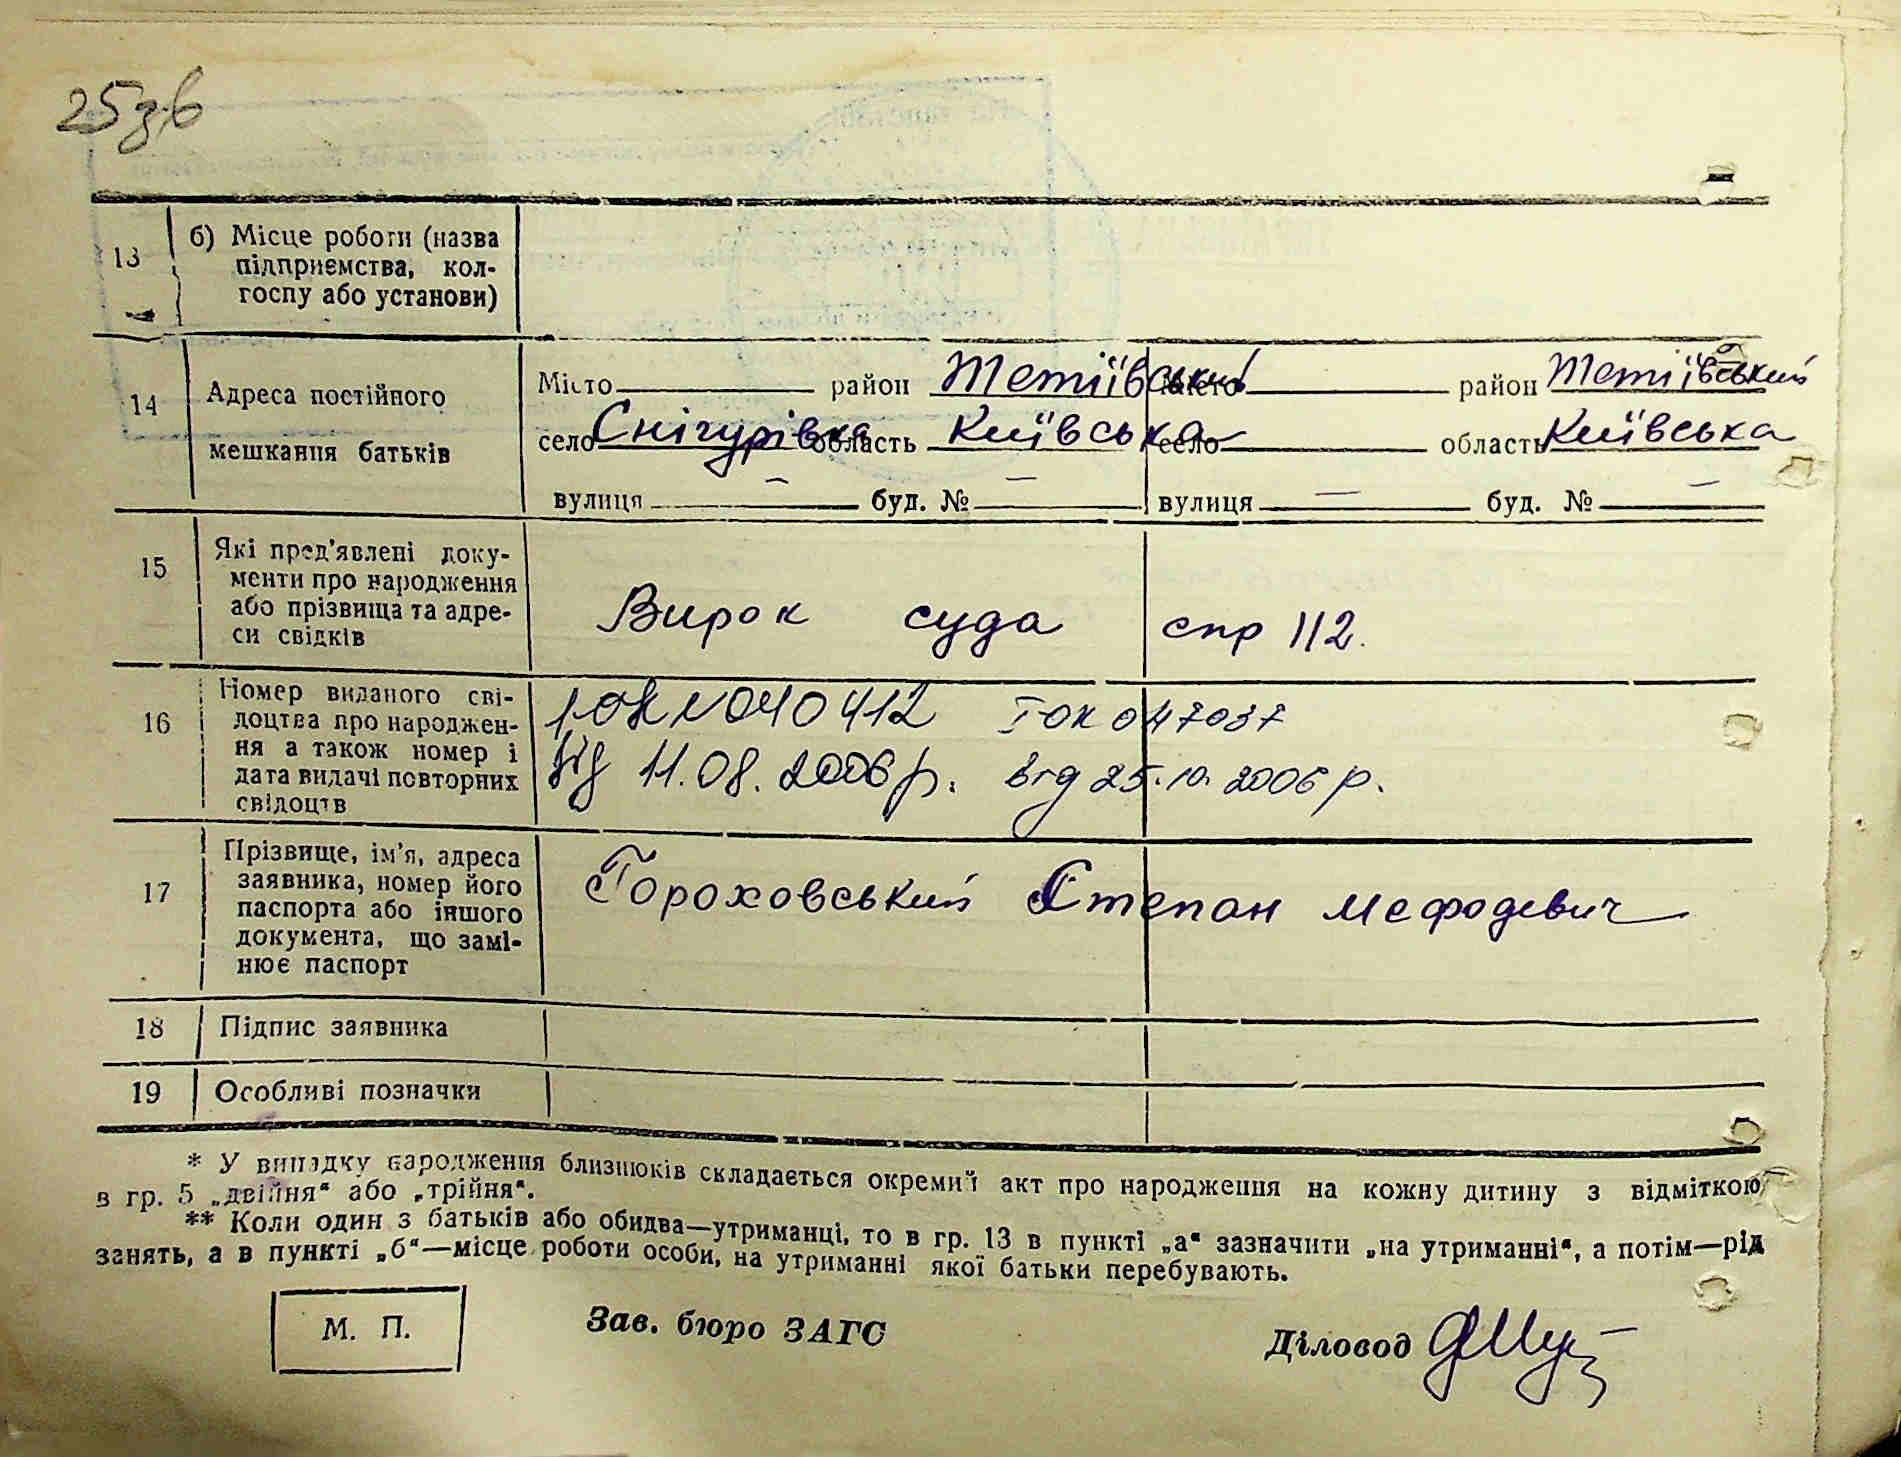 25зв
13 б) Місце роботи (назва
підприємства, кол-
госпу або установи)
14 Адреса постійного
мешкання батьків
Місто район Тетіївський Місто район Тетіївський
село Снігурівка область Київська село область Київська
вулиця – буд. № – вулиця – буд. № –
15 Які пред'явлені доку-
менти про народження
або прізвища та адре-
си свідків
Вирок суда спр 112.
16 Номер виданого сві-
доцтва про народжен-
ня а також номер і
дата видачі повторних
свідоцтв
1-ОК №040412 І-ОК 047037
від 11.08.2006 р. від 25.10.2006 р.
17 Прізвище, ім'я, адреса
заявника, номер його
паспорта або іншого
документа, що замі-
нює паспорт
Гороховський Степан Мефодевич
18 Підпис заявника
19 Особливі позначки
* У випадку народження близнюків складається окремий акт про народження на кожну дитину з відміткою
в гр. 5 „двійня" або „трійня".
** Коли один з батьків або обидва—утриманці, то в гр. 13 в пункті „а" зазначити „на утриманні", а потім—рід
занять, а в пункті „б"—місце роботи особи, на утриманні якої батьки перебувають.
М. П. Зав. бюро ЗАГС Діловод